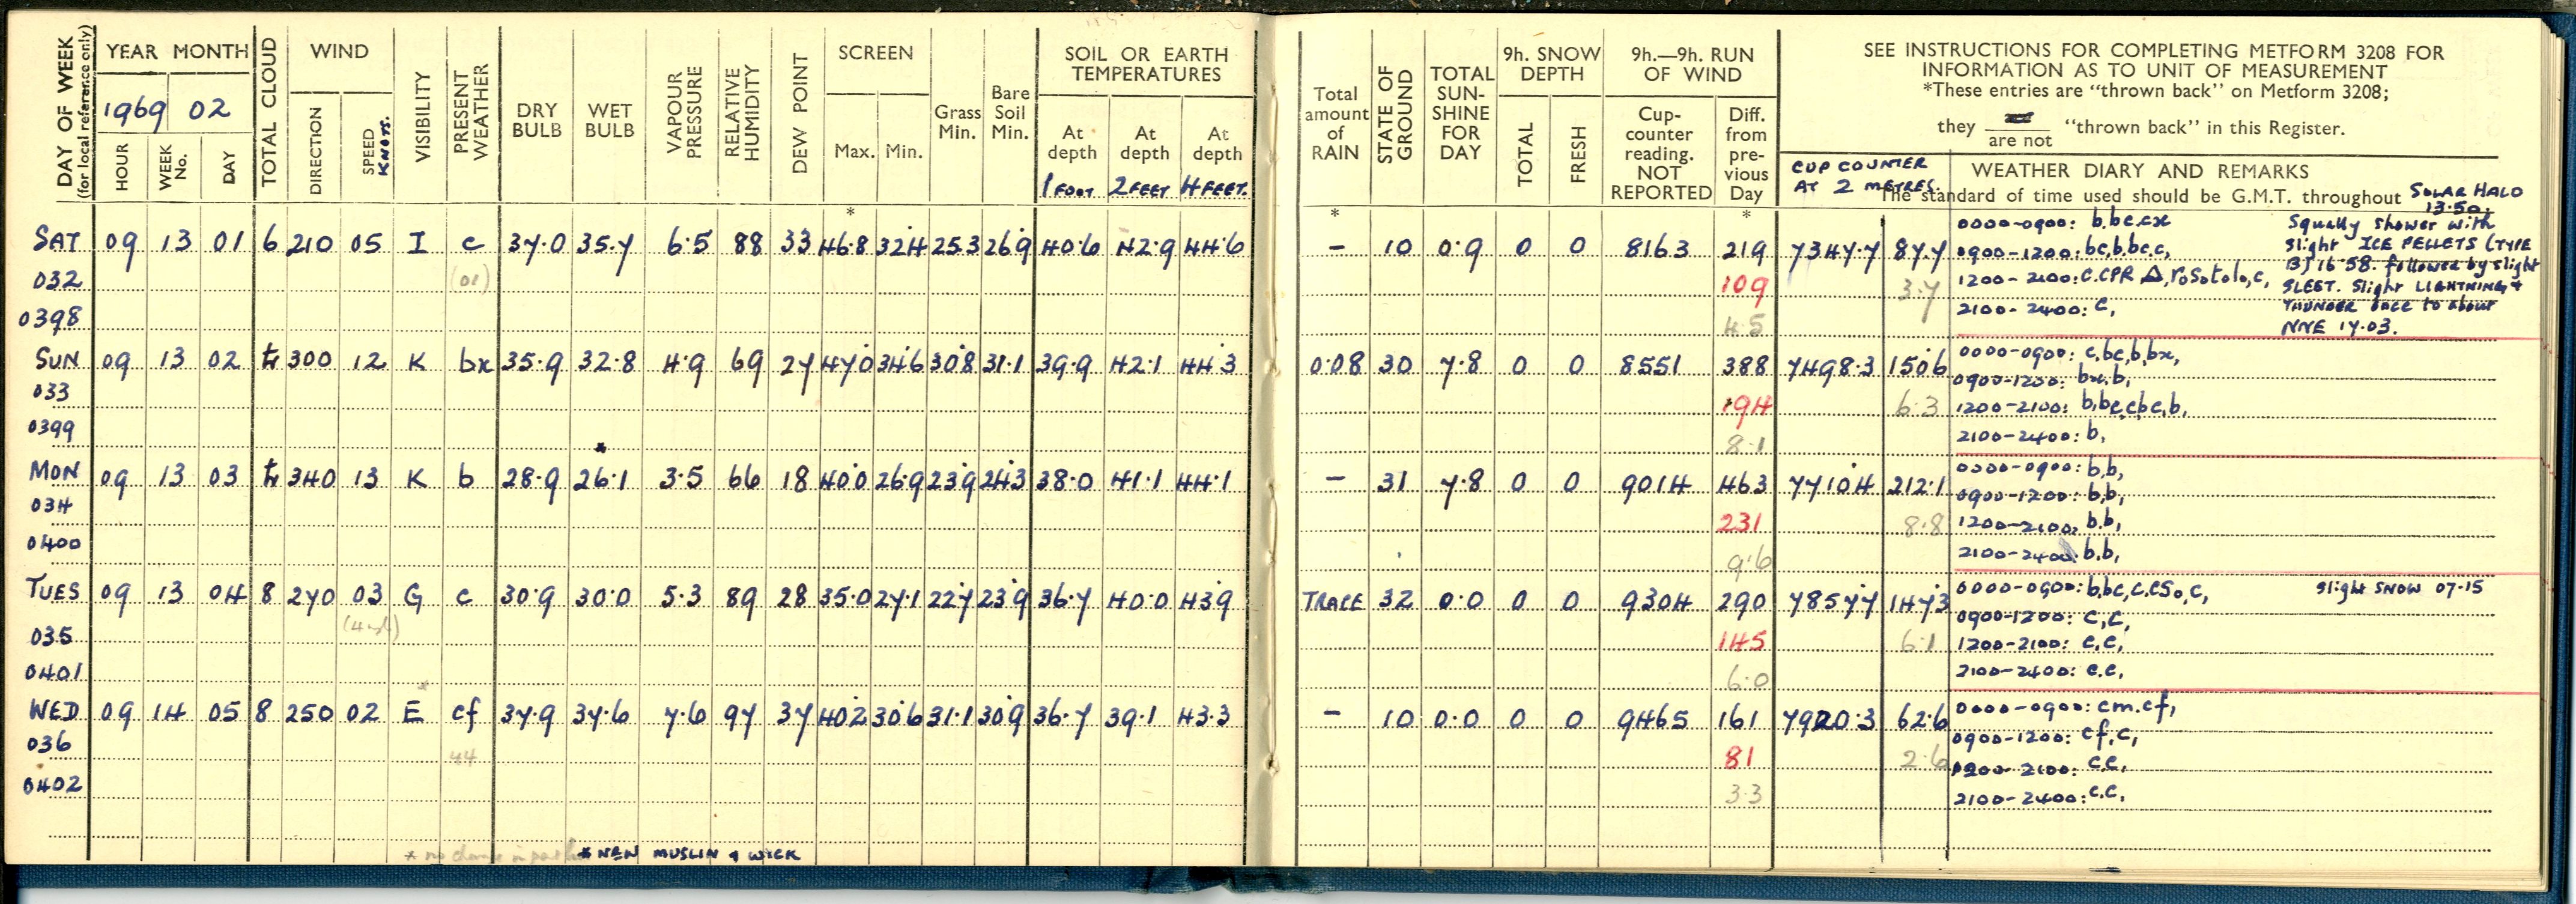 DAY OF WEEK
(for local reference only)
YEAR MONTH
1969 02
HOUR
WEEK No.
DAY
TOTAL CLOUD
WIND
DIRECTION
SPEED KNOTS.
VISIBILITY
PRESENT WEATHER
DRY BULB
WET BULB
VAPOUR PRESSURE
RELATIVE HUMIDITY
DEW POINT
SCREEN
Max. Min.
*
Grass Min.
Bare Soil Min.
SOIL OR EARTH
TEMPERATURES
At depth 1 FOOT
At depth 2 FEET
At depth 4 FEET.
Total amount of RAIN
*
STATE OF GROUND
TOTAL SUN-SHINE FOR DAY
9h. SNOW DEPTH
TOTAL
FRESH
9h.—9h. RUN OF WIND
Cup-counter reading. NOT REPORTED
Diff. from pre-vious Day
*
SEE INSTRUCTIONS FOR COMPLETING METFORM 3208 FOR
INFORMATION AS TO UNIT OF MEASUREMENT
*These entries are "thrown back" on Metform 3208;
they are not "thrown back" in this Register.
CUP COUNTER
AT 2 METRES.
WEATHER DIARY AND REMARKS
The standard of time used should be G.M.T. throughout
SOLAR HALO
13.50.
SAT 09 13 01 6 210 05 I c 37.0 35.7 6.5 88 33 46.8 32.4 25.3 26.9 40.6 42.9 44.6 – 10 0.9 0 0 8163 219 7347.7 87.7
032 (01) 109 3.7
0398 4.5
0000-0900: b.bc.cx
0900-1200: bc,b.bc.c,
1200-2100: c.cPR △,roSotolo,c,
2100-2400: C,
Squally shower with
slight ICE PELLETS (TYPE
B) 16 58. followed by slight
SLEET. Slight LIGHTNING +
THUNDER once to about
NNE 17.03.
SUN 09 13 02 300 12 K bx 35.9 32.8 4.9 69 27 47.0 34.6 30.8 31.1 39.9 42.1 44.3 0.08 30 7.8 0 0 8551 388 7498.3 150.6
033 194 6.3
0399 8.1
0000-0900: c,bc,b,bx,
0900-1200: bx.b,
1200-2100: b,bc,cbc,b,
2100-2400: b,
MON 09 13 03 340 13 K b 28.9 26.1 3.5 66 18 40.0 26.9 23.9 24.3 38.0 41.1 44.1 – 31 7.8 0 0 9014 463 7710.4 212.1
034 231 8.8
0400 9.6
0000-0900: b.b,
0900-1200: b.b,
1200-2100: b.b,
2100-2400: b.b,
TUES 09 13 04 8 270 03 G c 30.9 30.0 5.3 89 28 35.0 27.1 22.7 23.9 36.7 40.0 43.9 TRACE 32 0.0 0 0 9304 290 7857.7 147.3
035 145 6.1
0401 6.0
0000-0900: b,bc,c.cSo,c,
0900-1200: C,C,
1200-2100: c.c,
2100-2400: c.c,
slight SNOW 07-15
WED 09 14 05 8 250 02 E cf 37.9 37.6 7.6 97 37 40.2 30.6 31.1 30.9 36.7 39.1 43.3 – 10 0.0 0 0 9465 161 7920.3 62.6
036 44 81 2.6
0402 3.3
0000-0900: cm.cf,
0900-1200: cf,c,
1200-2100: c.c,
2100-2400: c.c,
* NEW MUSLIN & WICK